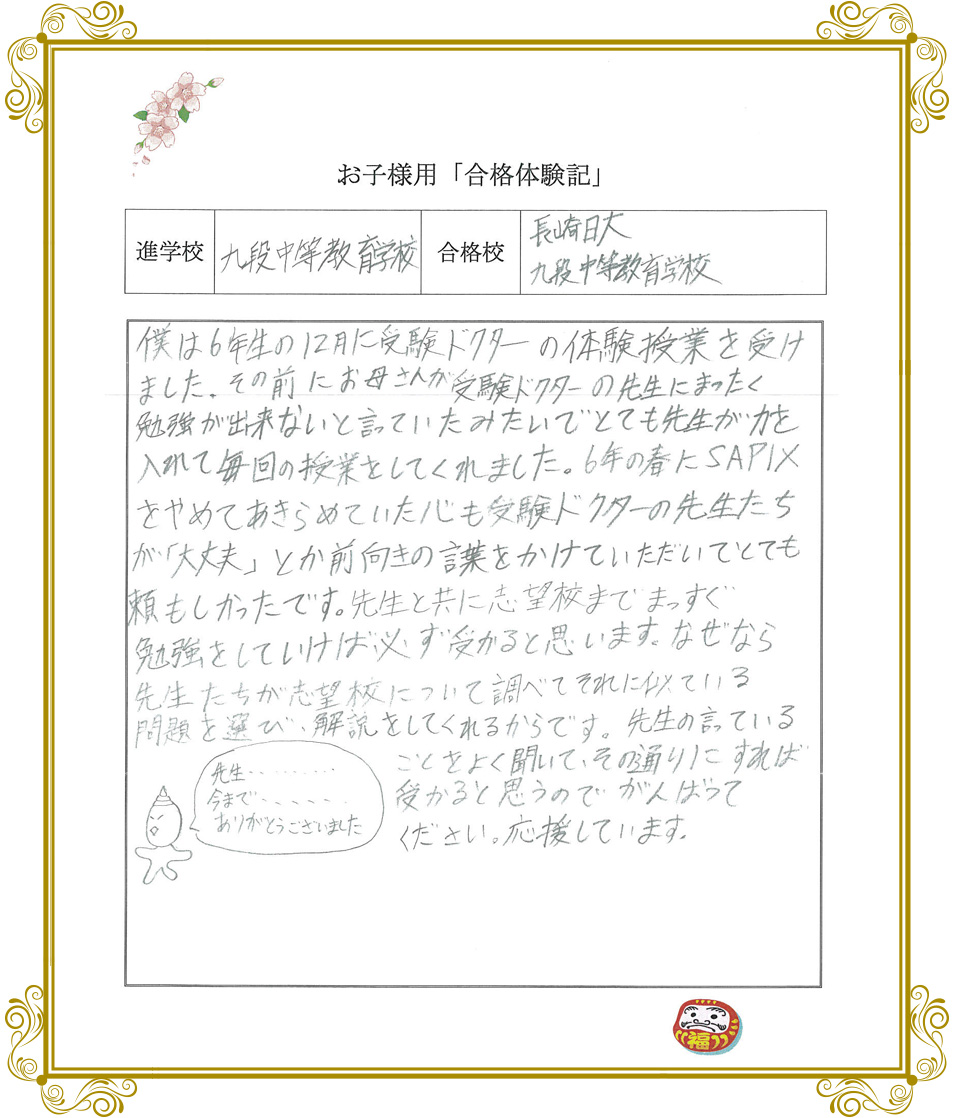 お子様用「合格体験記」
進学校
九段中等教育学校
合格校
長崎日大
九段中等教育学校
僕は6年生の12月に受験ドクターの体験授業を受け
ました。その前にお母さんが受験ドクターの先生にまったく
勉強が出来ないと言っていたみたいでとても先生が力を
入れて毎回の授業をしてくれました。6年の春にSAPIX
をやめてあきらめていた心も受験ドクターの先生たち
が「大丈夫」とか前向きの言葉をかけていただいてとても
頼もしかったです。先生と共に志望校までまっすぐ
勉強をしていけば必ず受かると思います。なぜなら
先生たちが志望校について調べてそれに似ている
問題を選び、解説をしてくれるからです。先生の言っている
ことをよく聞いて、その通りにすれば
受かると思うのでがんばって
ください。応援しています。
先生.........
今まで......
ありがとうございました
福